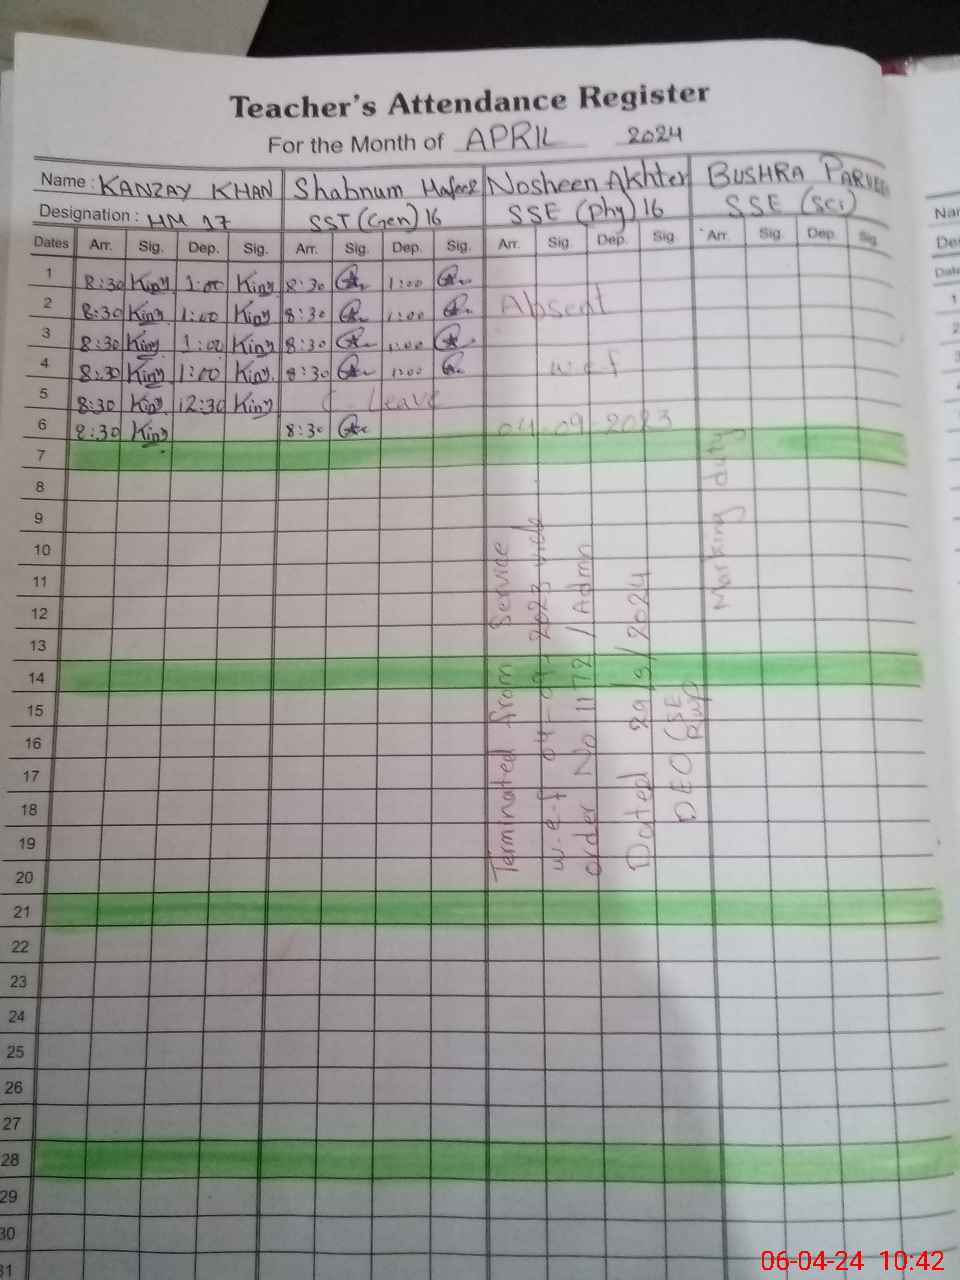 Teacher's Attendance Register
For the Month of APRIL 2024
Name : KANZAY KHAN Shabnum Hafeez Nosheen Akhter BUSHRA PARVEEN
Designation : HM 17 SST (Gen) 16 SSE (Phy) 16 SSE (Sci)
Dates Arr. Sig. Dep. Sig. Arr. Sig. Dep. Sig. Arr. Sig. Dep. Sig. Arr. Sig. Dep. Sig.
1 8:30 King 1:00 King 8:30 1:00
2 8:30 King 1:00 King 8:30 1:00 Absent
3 8:30 King 1:00 King 8:30 1:00
4 8:30 King 1:00 King 8:30 1:00 w.e.f
5 8:30 King 12:30 King C. Leave
6 8:30 King 8:30 04-09-2023
7
8
9
10
11
12
13
14
15
16
17
18
19
20
21
22
23
24
25
26
27
28
29
30
31
Terminated from Service
w.e.f 04-09-2023 vide
order No 1172 /Admn
Dated 29/3/2024
DEO (SE
Rwp
Marking duty
Nar
De
Date
1
2
3
4
5
06-04-24 10:42